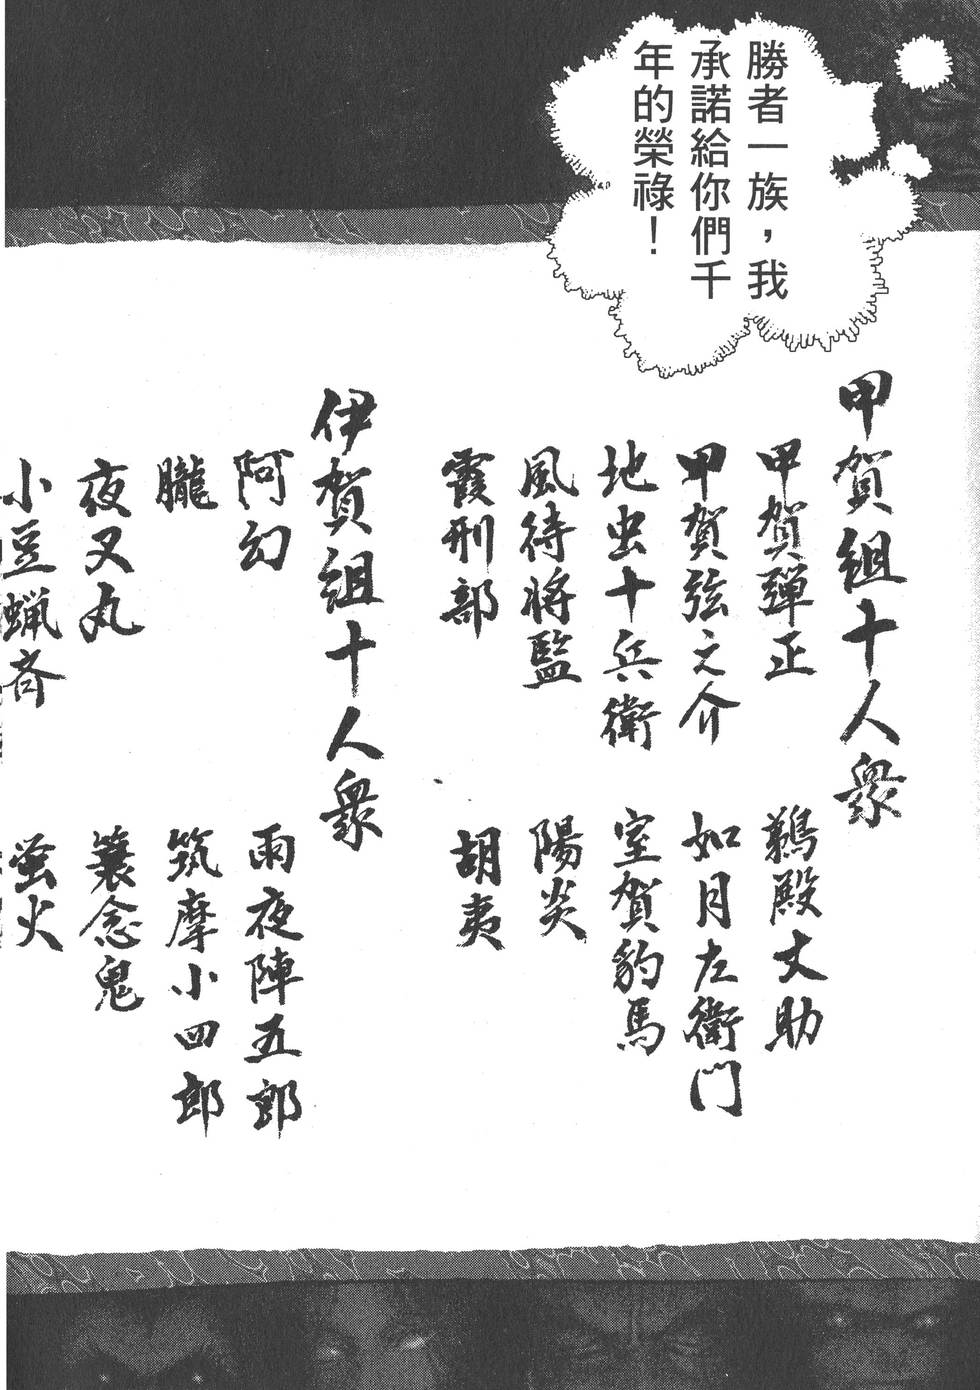 勝者一族，我
承諾給你們千
年的榮祿！
甲賀組十人衆
甲賀彈正
鵜殿丈助
甲賀弦之介
如月左衛門
地虫十兵衛
室賀豹馬
風待将監
陽炎
霞刑部
胡夷
伊賀組十人衆
阿幻
雨夜陣五郎
朧
筑摩小四郎
夜叉丸
蓑念鬼
小豆蝋斉
蛍火